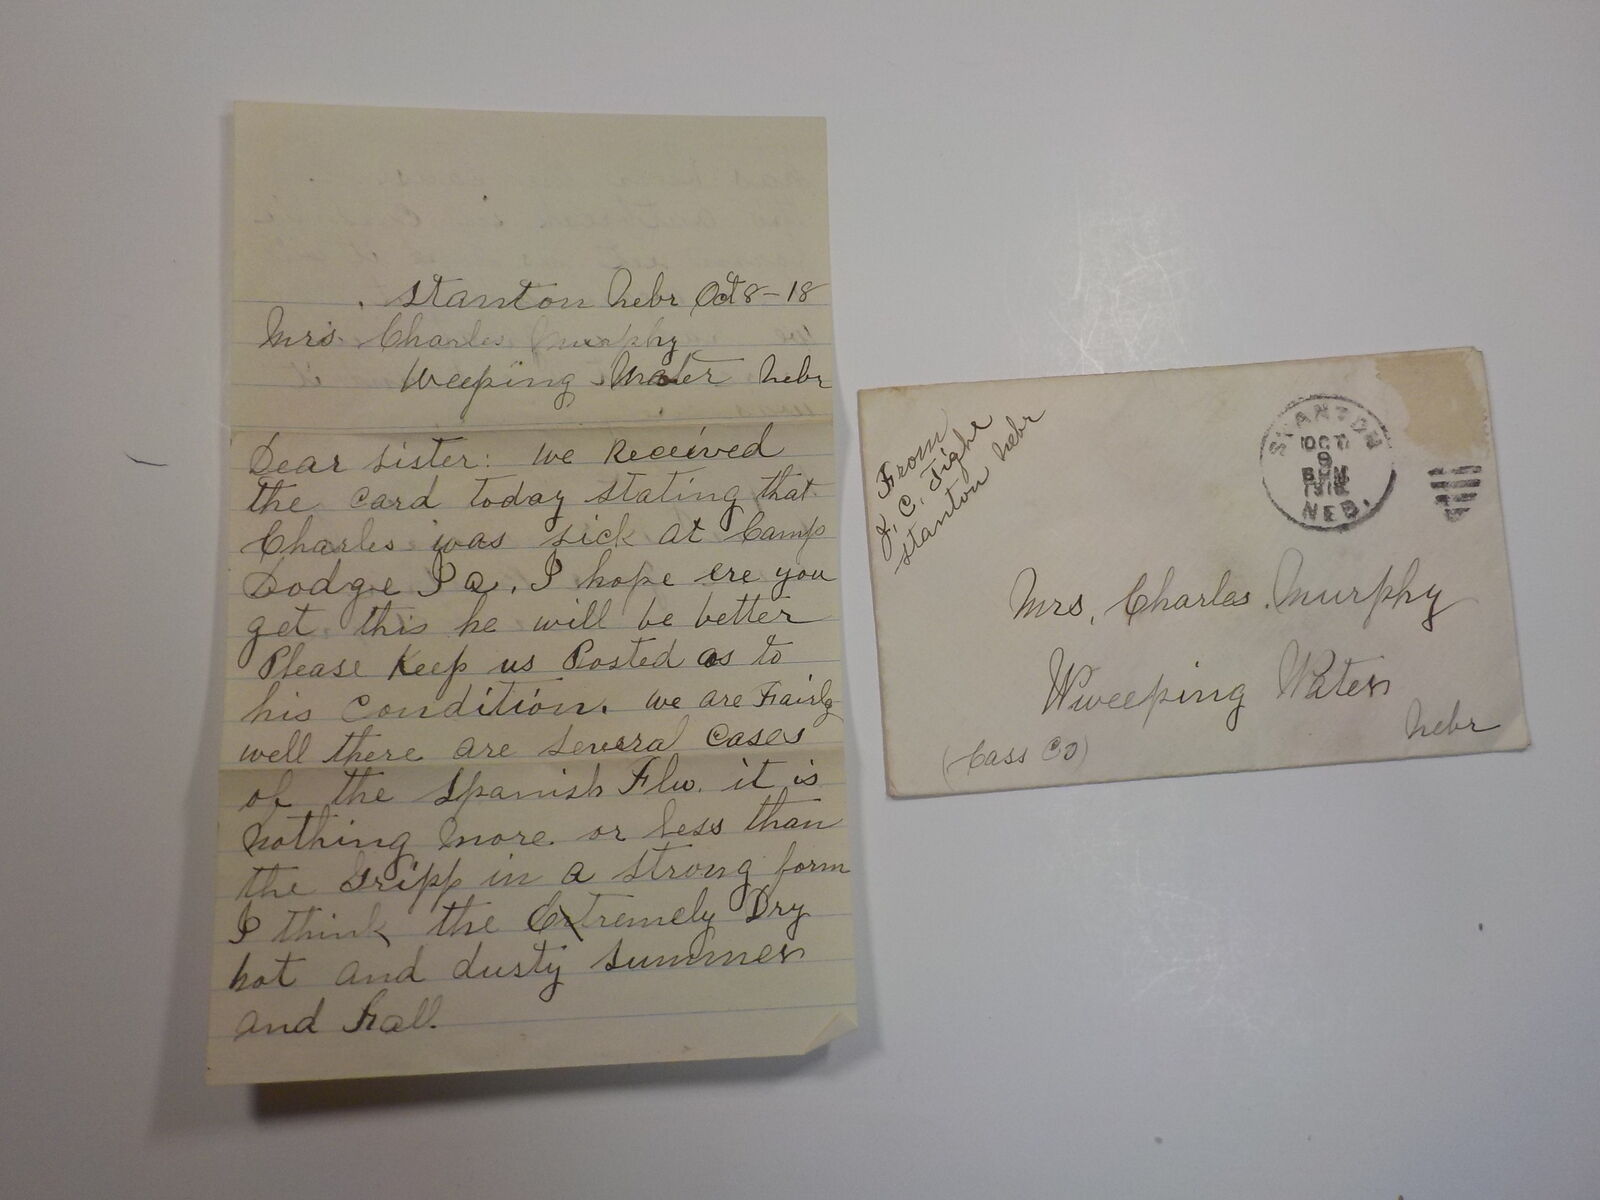 Stanton Nebr Oct 8-18
Mrs. Charles Murphy
Weeping Water Nebr
Dear sister: we Received
the card today stating that
Charles was sick at Camp
Dodge Ia. I hope ere you
get this he will be better
Please Keep us Posted as to
his condition. we are Fairly
well there are several cases
of the Spanish Flu. it is
nothing more or less than
the Gripp in a strong form
I think the Extremely Dry
hot and dusty summer
and Fall.
From
J. C. Tighe
Stanton Nebr
STANTON
OCT
9
PM
1918
NEB.
Mrs. Charles Murphy
Wweeping Water
Nebr
(Cass Co)